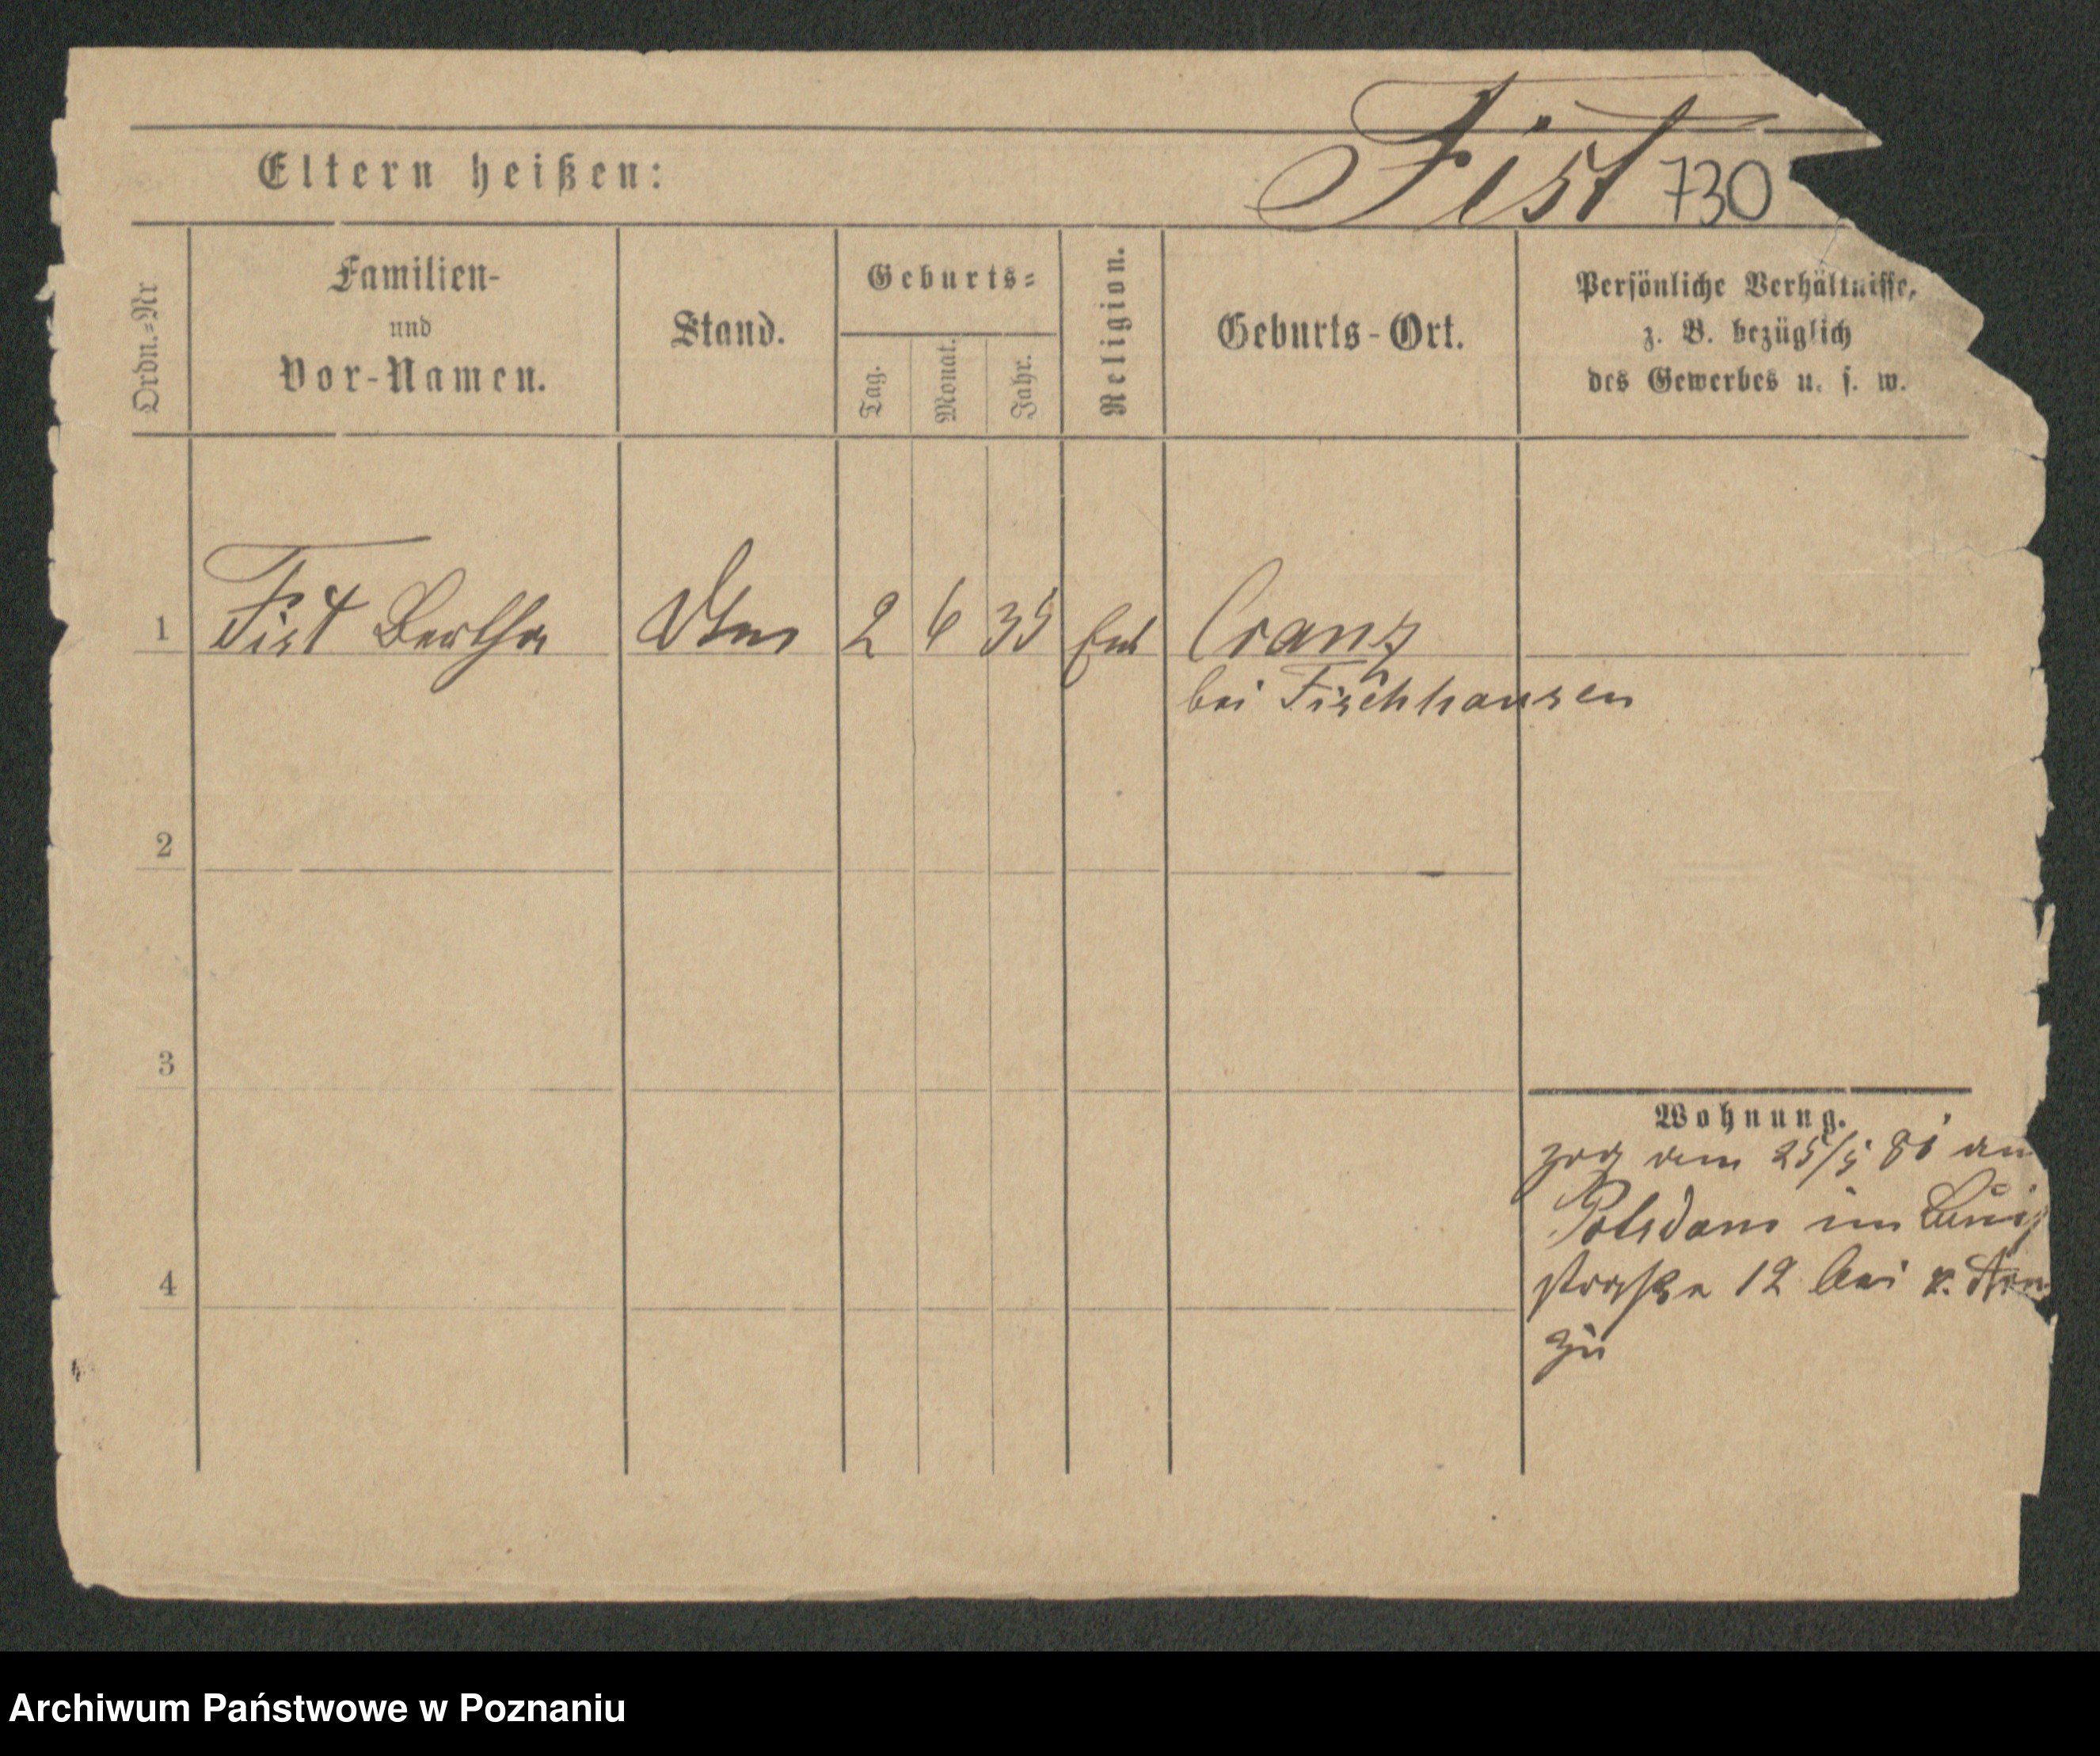 Fist 730
Eltern heißen:
Ordn.=Nr
Familien-
und
Vor-Namen.
Stand.
Geburts=
Tag.
Monat.
Jahr.
Religion.
Geburts-Ort.
Persönliche Verhältnisse,
z. B. bezüglich
des Gewerbes u. s. w.
1 Fist Bertha 2 6 35 Cranz
bei Fischhausen
2
3
Wohnung.
zog 25/5 81
Potsdam
4
straße 12 bei v.
zu
Archiwum Państwowe w Poznaniu